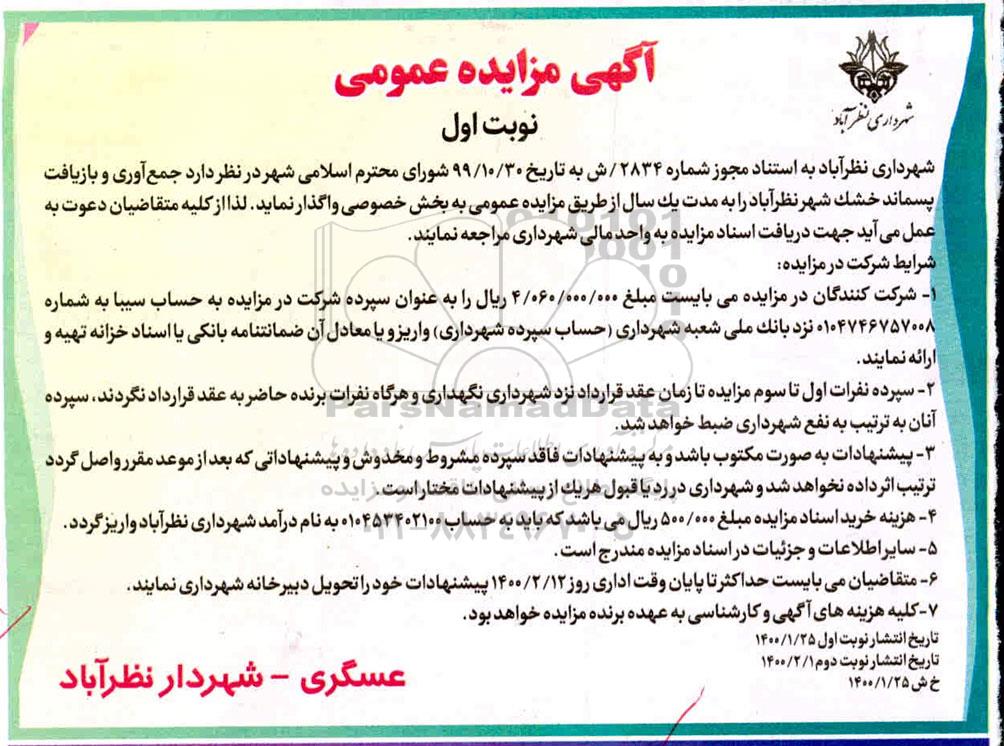 شهرداری نظرآباد
آگهی مزایده عمومی
نوبت اول
شهرداری نظرآباد به استناد مجوز شماره ۲۸۳۴/ش به تاریخ ۹۹/۱۰/۳۰ شورای محترم اسلامی شهر در نظر دارد جمع‌آوری و بازیافت
پسماند خشك شهر نظرآباد را به مدت يك سال از طریق مزایده عمومی به بخش خصوصی واگذار نماید. لذا از کلیه متقاضیان دعوت به
عمل می آید جهت دریافت اسناد مزایده به واحد مالی شهرداری مراجعه نمایند.
شرایط شرکت در مزایده:
۱- شرکت کنندگان در مزایده می بایست مبلغ ۴/۰۶۰/۰۰۰/۰۰۰ ریال را به عنوان سپرده شرکت در مزایده به حساب سیبا به شماره
۰۱۰۴۷۴۶۷۵۷۰۰۸ نزد بانك ملی شعبه شهرداری (حساب سپرده شهرداری) واریز و یا معادل آن ضمانتنامه بانکی یا اسناد خزانه تهیه و
ارائه نمایند.
۲- سپرده نفرات اول تا سوم مزایده تا زمان عقد قرارداد نزد شهرداری نگهداری و هرگاه نفرات برنده حاضر به عقد قرارداد نگردند، سپرده
آنان به ترتیب به نفع شهرداری ضبط خواهد شد.
۳- پیشنهادات به صورت مکتوب باشد و به پیشنهادات فاقد سپرده مشروط و مخدوش و پیشنهاداتی که بعد از موعد مقرر واصل گردد
ترتیب اثر داده نخواهد شد و شهرداری در رد یا قبول هریك از پیشنهادات مختار است.
۴- هزینه خرید اسناد مزایده مبلغ ۵۰۰/۰۰۰ ریال می باشد که باید به حساب ۰۱۰۴۵۳۴۰۲۱۰۰ به نام درآمد شهرداری نظرآباد واریز گردد.
۵- سایر اطلاعات و جزئیات در اسناد مزایده مندرج است.
۶- متقاضیان می بایست حداکثر تا پایان وقت اداری روز ۱۴۰۰/۲/۱۲ پیشنهادات خود را تحویل دبیرخانه شهرداری نمایند.
۷- کلیه هزینه های آگهی و کارشناسی به عهده برنده مزایده خواهد بود.
تاریخ انتشار نوبت اول ۱۴۰۰/۱/۲۵
تاریخ انتشار نوبت دوم ۱۴۰۰/۲/۱
خ ش ۱۴۰۰/۱/۲۵
عسگری - شهردار نظرآباد
ParsNamadData